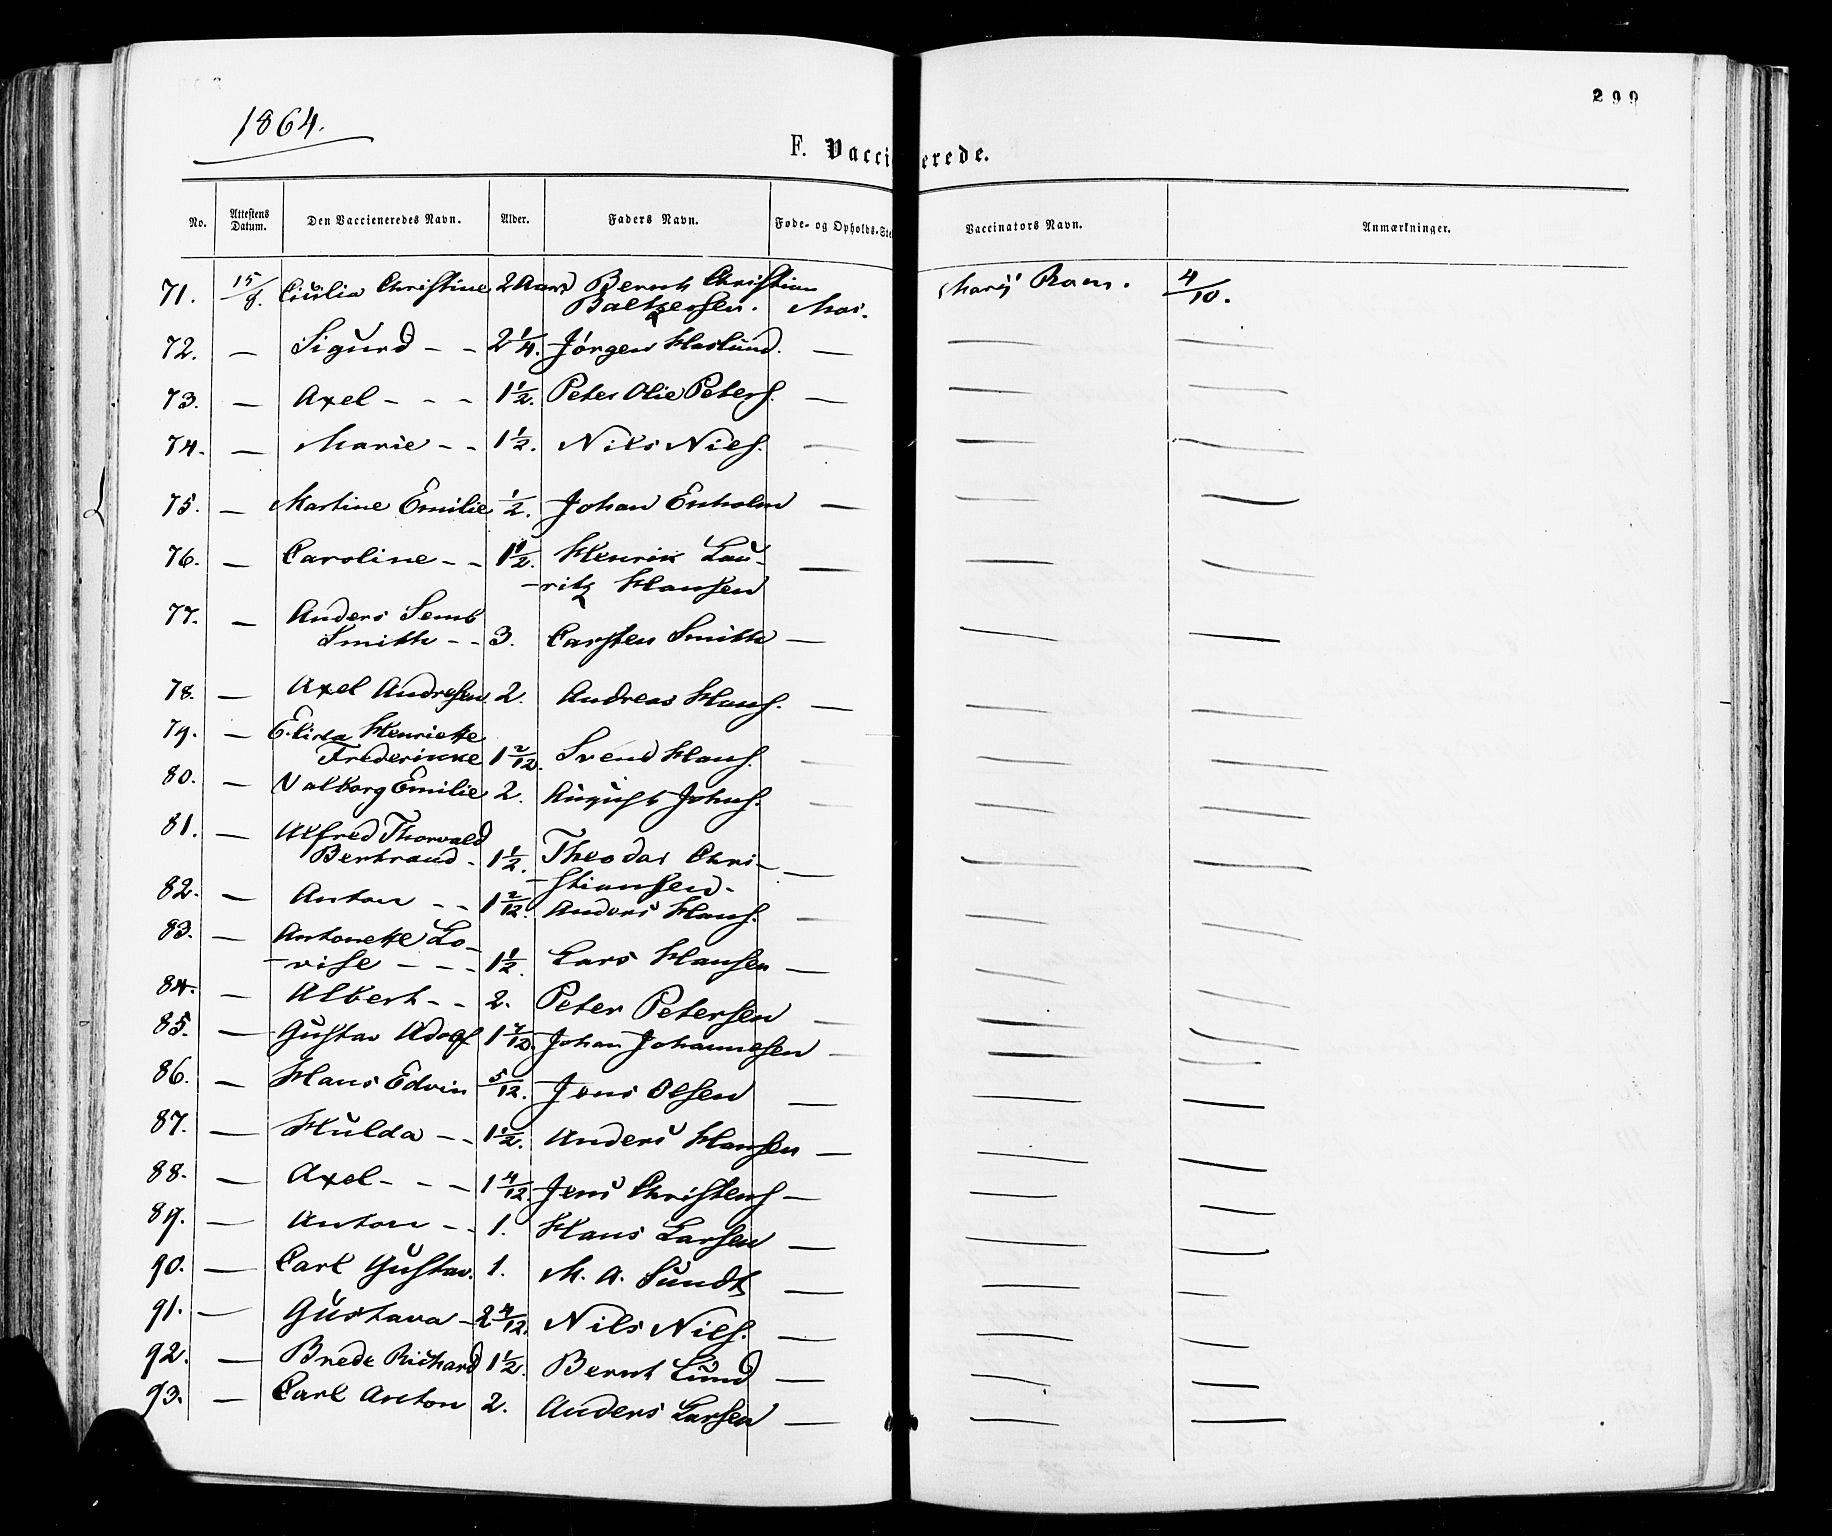 299
1864.
F. Vaccinerede.
No. Attestens Datum. Den Vaccieneredes Navn. Alder. Faders Navn. Føde- og Opholds-Ste Vaccinators Navn. Anmærkninger.
71. 15/9. Christine 2 Aar Bernt Christian 4/10.
Baltzersen. Mos.
72. — Sigurd - - 2 1/4. Jørgen Haslund. — — —
73. — Axel - - - 1 1/2. Peter Olie Peters. — — —
74. — Marie - - 1 1/2. Nils Niels. — — —
75. — Martine Emilie 1/2. Johan Enholm — — —
76. — Caroline - - 1 1/2. Henrik Lau- — — —
-ritz Hansen
77. — Anders Semb
Smith - - 3. Carsten Smith — — —
78. — Axel Andresen 2. Andreas Hans. — — —
79. — Elida Henriette
Frederikke 1 2/12. Svend Hans. — — —
80. — Valborg Emilie 2. August Johns. — — —
81. — Alfred Thorvald
Bertrand - 1 1/2. Theodor Chri- — — —
-stiansen.
82. — Anton - - 1 2/12. Anders Hans. — — —
83. — Antonette Lo-
-vise - - - 1 1/2. Lars Hansen — — —
84. — Albert - - 2. Peter Petersen — — —
85. — Gustav Adolf 1 7/12. Johan Johannesen — — —
86. — Hans Edvin 5/12. Jens Olsen — — —
87. — Hulda - - 1 1/2. Anders Hansen — — —
88. — Axel - - - 1 4/12. Jens Christens — — —
89. — Anton - - 1. Hans Larsen — — —
90. — Carl Gustav. 1. M. A. Sundt — — —
91. — Gustava - 2 4/12. Nils Niels. — — —
92. — Brede Richard 1 1/2. Bernt Lund — — —
93. — Carl Anton 2. Anders Larsen — — —